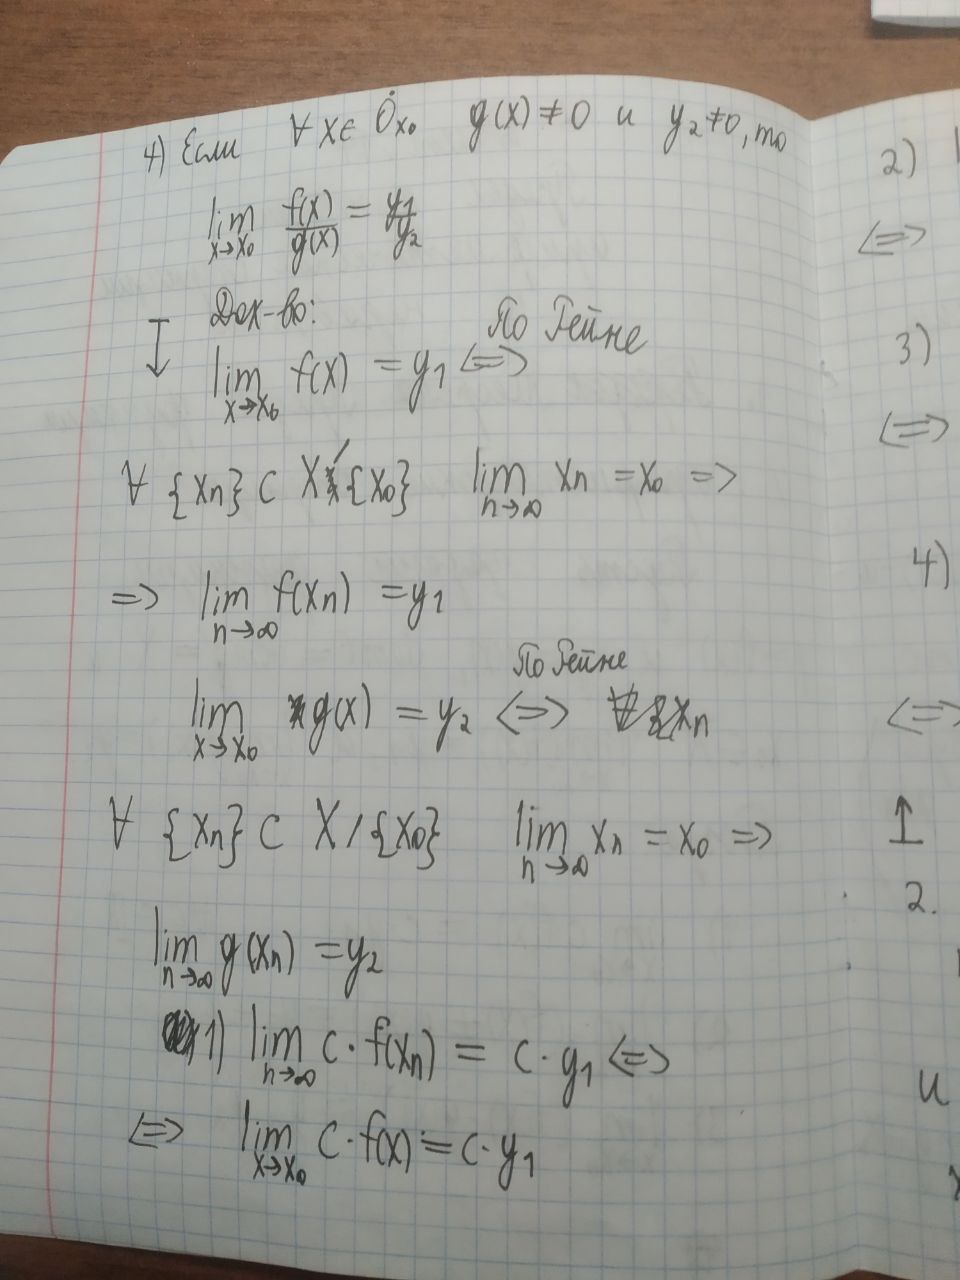 4) Если ∀ x ∈ Ȯx₀ g(x) ≠ 0 и y₂ ≠ 0, то
lim x→x₀ f(x)/g(x) = y₁/y₂
Док-во:
По Гейне
lim x→x₀ f(x) = y₁ <=>
∀ {xn} ⊂ X / {x₀} lim n→∞ xn = x₀ =>
=> lim n→∞ f(xn) = y₁
По Гейне
lim x→x₀ g(x) = y₂ <=> xn
∀ {xn} ⊂ X / {x₀} lim n→∞ xn = x₀ =>
lim n→∞ g(xn) = y₂
1) lim n→∞ c · f(xn) = c · y₁ <=>
<=> lim x→x₀ c · f(x) = c · y₁
2)
<=>
3)
<=>
4)
<=>
2.
и